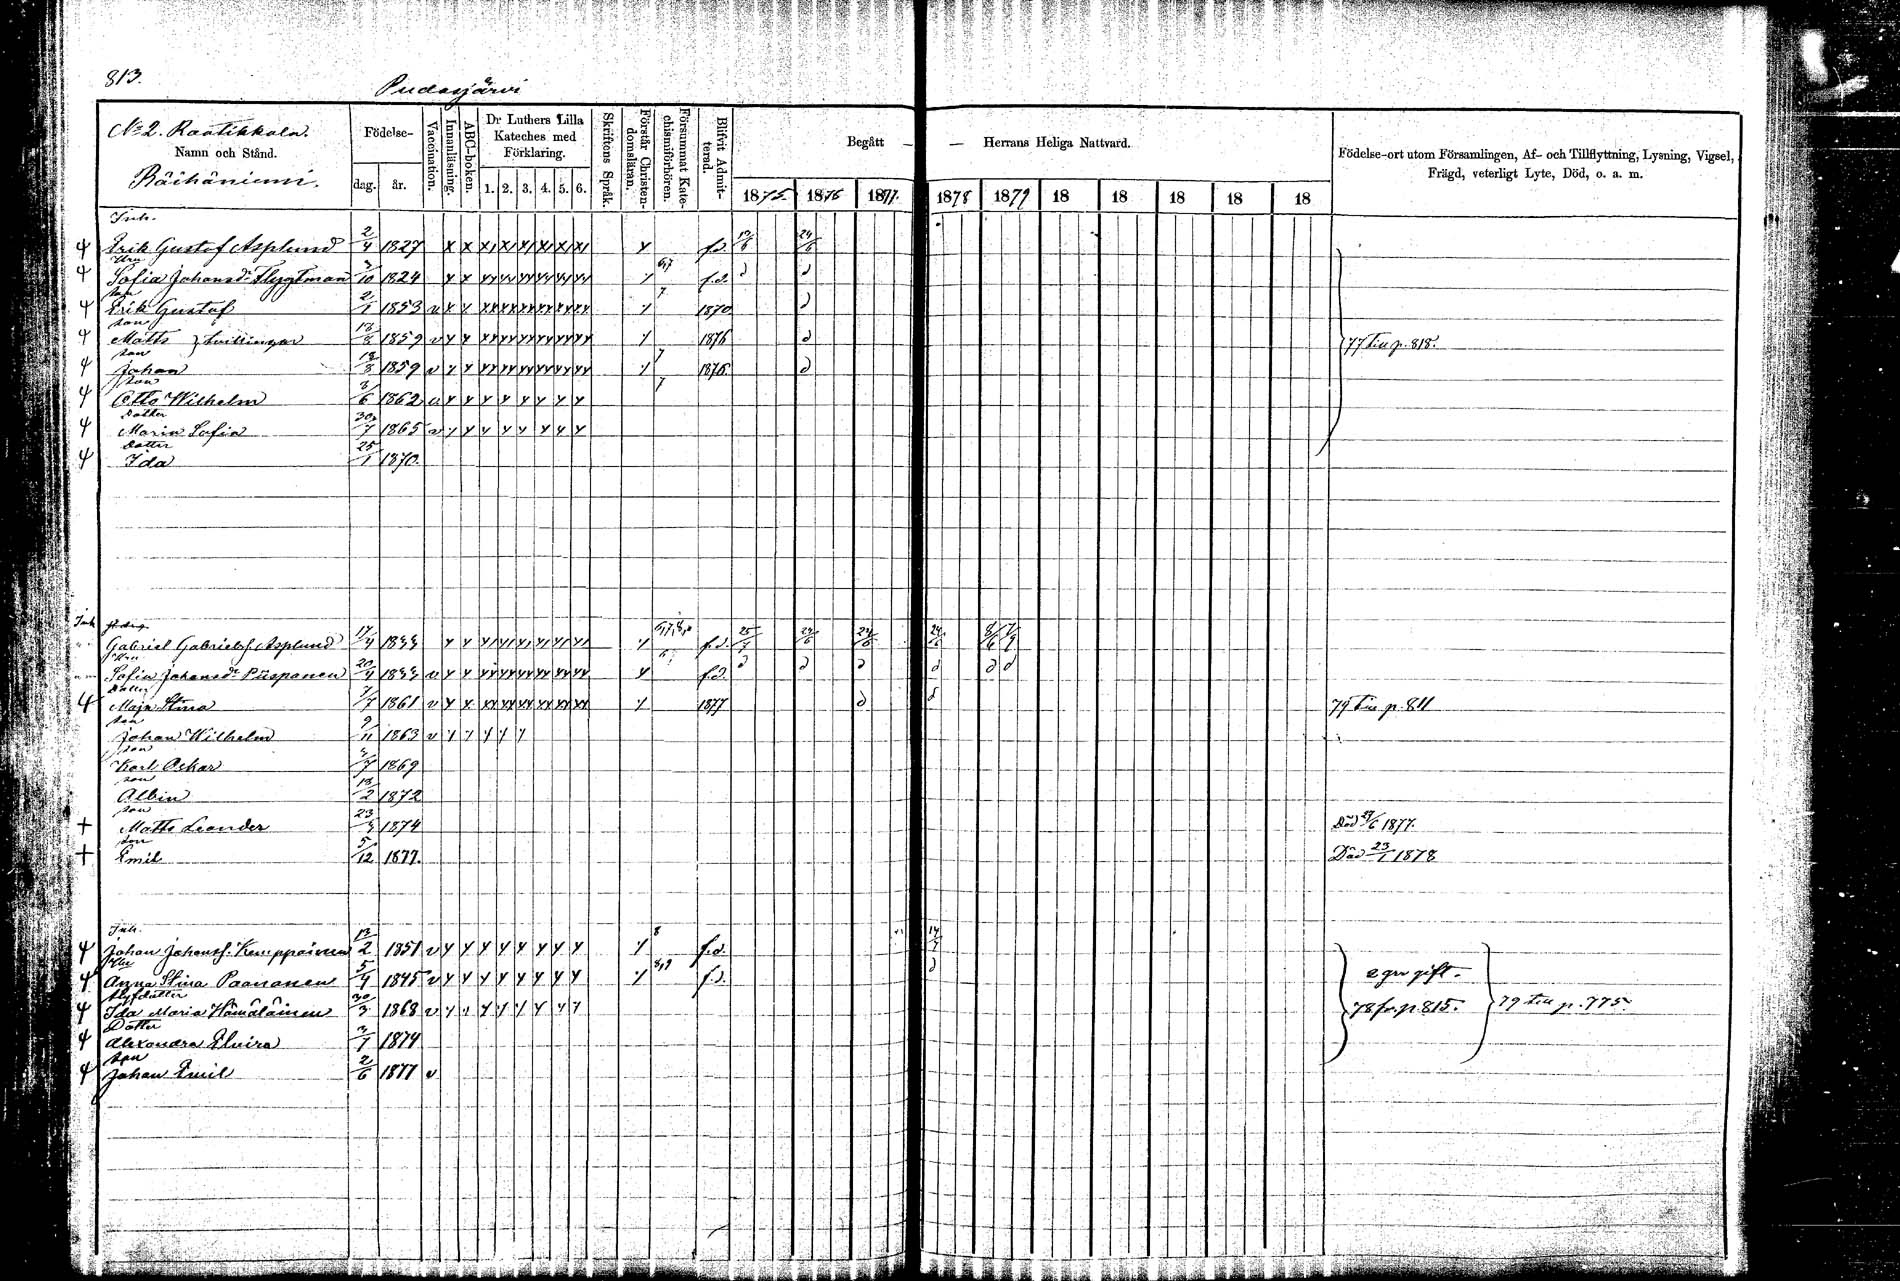 813.
Pudasjärvi
No 2. Raatikkala.
Namn och Stånd.
Räihäniemi.
Födelse-
dag. år.
Vaccination.
Innanläsning.
ABC-boken.
Dr Luthers Lilla Kateches med Förklaring.
1. 2. 3. 4. 5. 6.
Skriftens Språk.
Förstår Christendomsläran.
Försummat Katechismiförhören.
Blifvit Admitterad.
Begått — — Herrans Heliga Nattvard.
1875. 1876 1877. 1878 1879 18 18 18 18 18
Födelse-ort utom Församlingen, Af- och Tillflyttning, Lysning, Vigsel, Frägd, veterligt Lyte, Död, o. a. m.
Inh.
Erik Gustof Asplund 2/4 1827 f.d. 24/6
Hru
Sofia Johansdr Flygtman 3/10 1824 6,7 f.d.
son
Erik Gustaf 2/1 1853 v 7 1870
son
Matts } tvillingar 18/8 1859 v 1876 77 till p. 818.
son
Johan 18/8 1859 v 7 1876.
son
Otto Wilhelm 3/6 1862 v 7
Dotter
Maria Sofia 30/7 1865 v
Dotter
Ida 25/1 1870.
Inh
Gabriel Gabrielsf. Asplund 17/4 1833 f.d. 25/7 24/6 24/6 24/6 8/6 7/9
Hru
Sofia Johansdr Piispanen 20/4 1833 v f.d.
Dotter
Maja Stina 7/7 1861 v 1877 79 till p. 811
son
Johan Wilhelm 9/11 1863 v
son
Karl Oskar 3/7 1869
son
Albin 18/2 1872
son
+ Matts Leander 23/3 1874 Död 27/6 1877.
son
+ Emil 5/12 1877. Död 23/1 1878
Inh.
Johan Johansf. Kemppainen 13/2 1851 v 8 f.d. 14/7
Hru
Anna Stina Paananen 5/4 1845 v 8,9 f.d. 2 gr gift.
styfdotter
Ida Maria Hämäläinen 30/3 1868 v 78 fr. p. 815. 79 till p. 775.
Dotter
Alexandra Elvira 3/1 1874
son
Johan Emil 2/6 1877 v